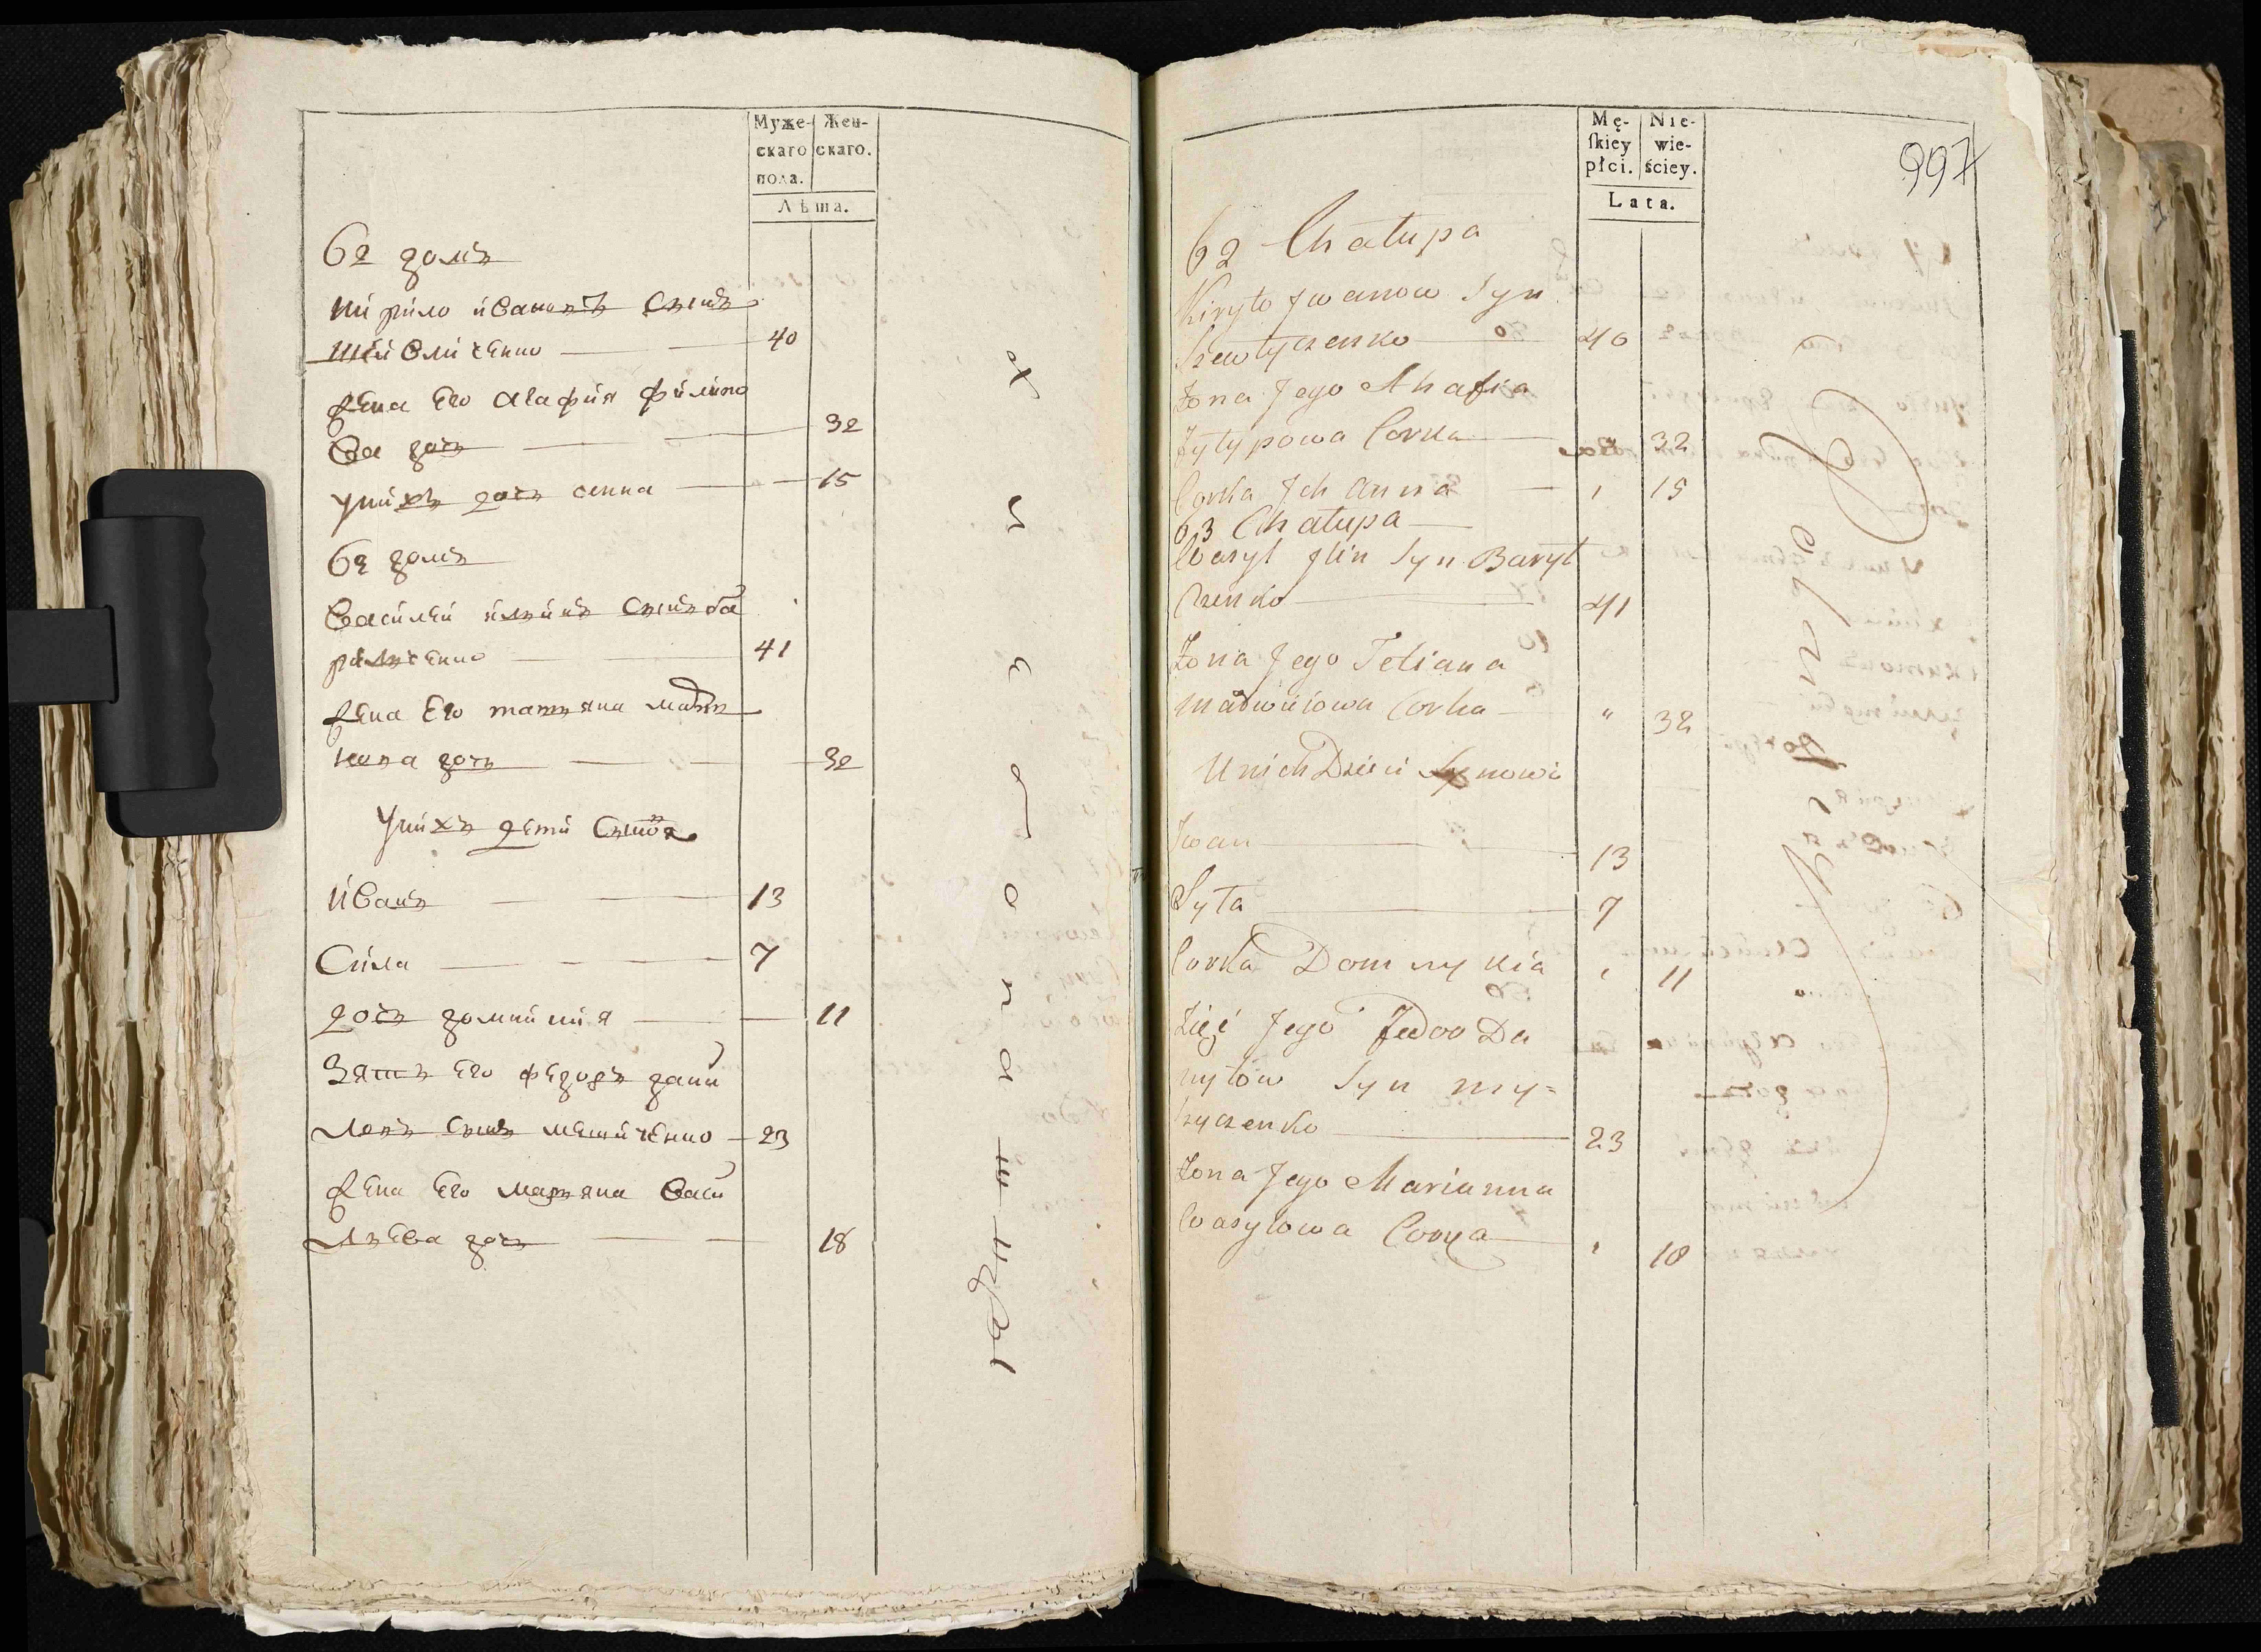 Муже-
скаго
пола.
Жен-
скаго.
Лѣта.
62 домъ
Кирило ивановъ сынъ
шевличенко 40
жена Его агафия филипо
ва дочь 32
уних дочь анна 15
63 домъ
Василий ильинъ сынъ ба
рильченко 41
жена Его татьяна матвѣ
ева дочь 32
унихъ дети сыновя
Иванъ 13
Сила 7
дочь домникия 11
Зять Его федоръ дани
ловъ сынъ мешиченко 23
жена Его марьяна васи
льева дочь 18
Mę-
ſkiey
płci.
Nie-
wie-
ściey.
Lata.
997
62 Chałupa
Kiryło Jwanow Syn
Szewlyczenko 40
Żona Jego Ahafia
Fylypowa Corka " 32
Corka Jch Anna " 15
63 Chałupa
Wasyl Jlin Syn Baryl
czenko 41
Żona Jego Tetiana
Matwiiowa Corka " 32
U nich Dzieci Synowie
Jwan 13
Syła 7
Corka Domnykia " 11
Zięć Jego Fedor Da
nyłow Syn My=
szyczenko 23
Żona Jego Marianna
Wasylowa Corka " 18